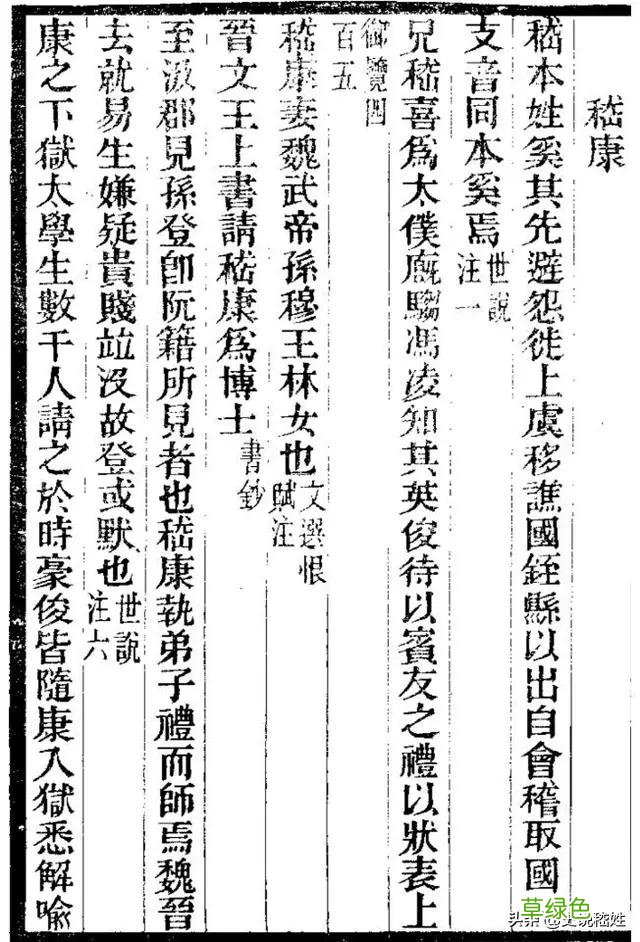 嵇康
嵇本姓奚其先避怨徙上虞移譙國銍縣以出自會稽取國
支音同本奚焉世說
注一
兄嵇喜爲太僕廐騶馮凌知其英俊待以賓友之禮以狀表上
御覽四
百五
嵇康妻魏武帝孫穆王林女也文選恨
賦注
晉文王上書請嵇康爲博士書鈔
至汲郡見孫登卽阮籍所見者也嵇康執弟子禮而師焉魏晉
去就易生嫌疑貴賤竝沒故登或默也世說
注六
康之下獄太學生數千人請之於時豪俊皆隨康入獄悉解喻
草绿色
头条 @文说嵇姓